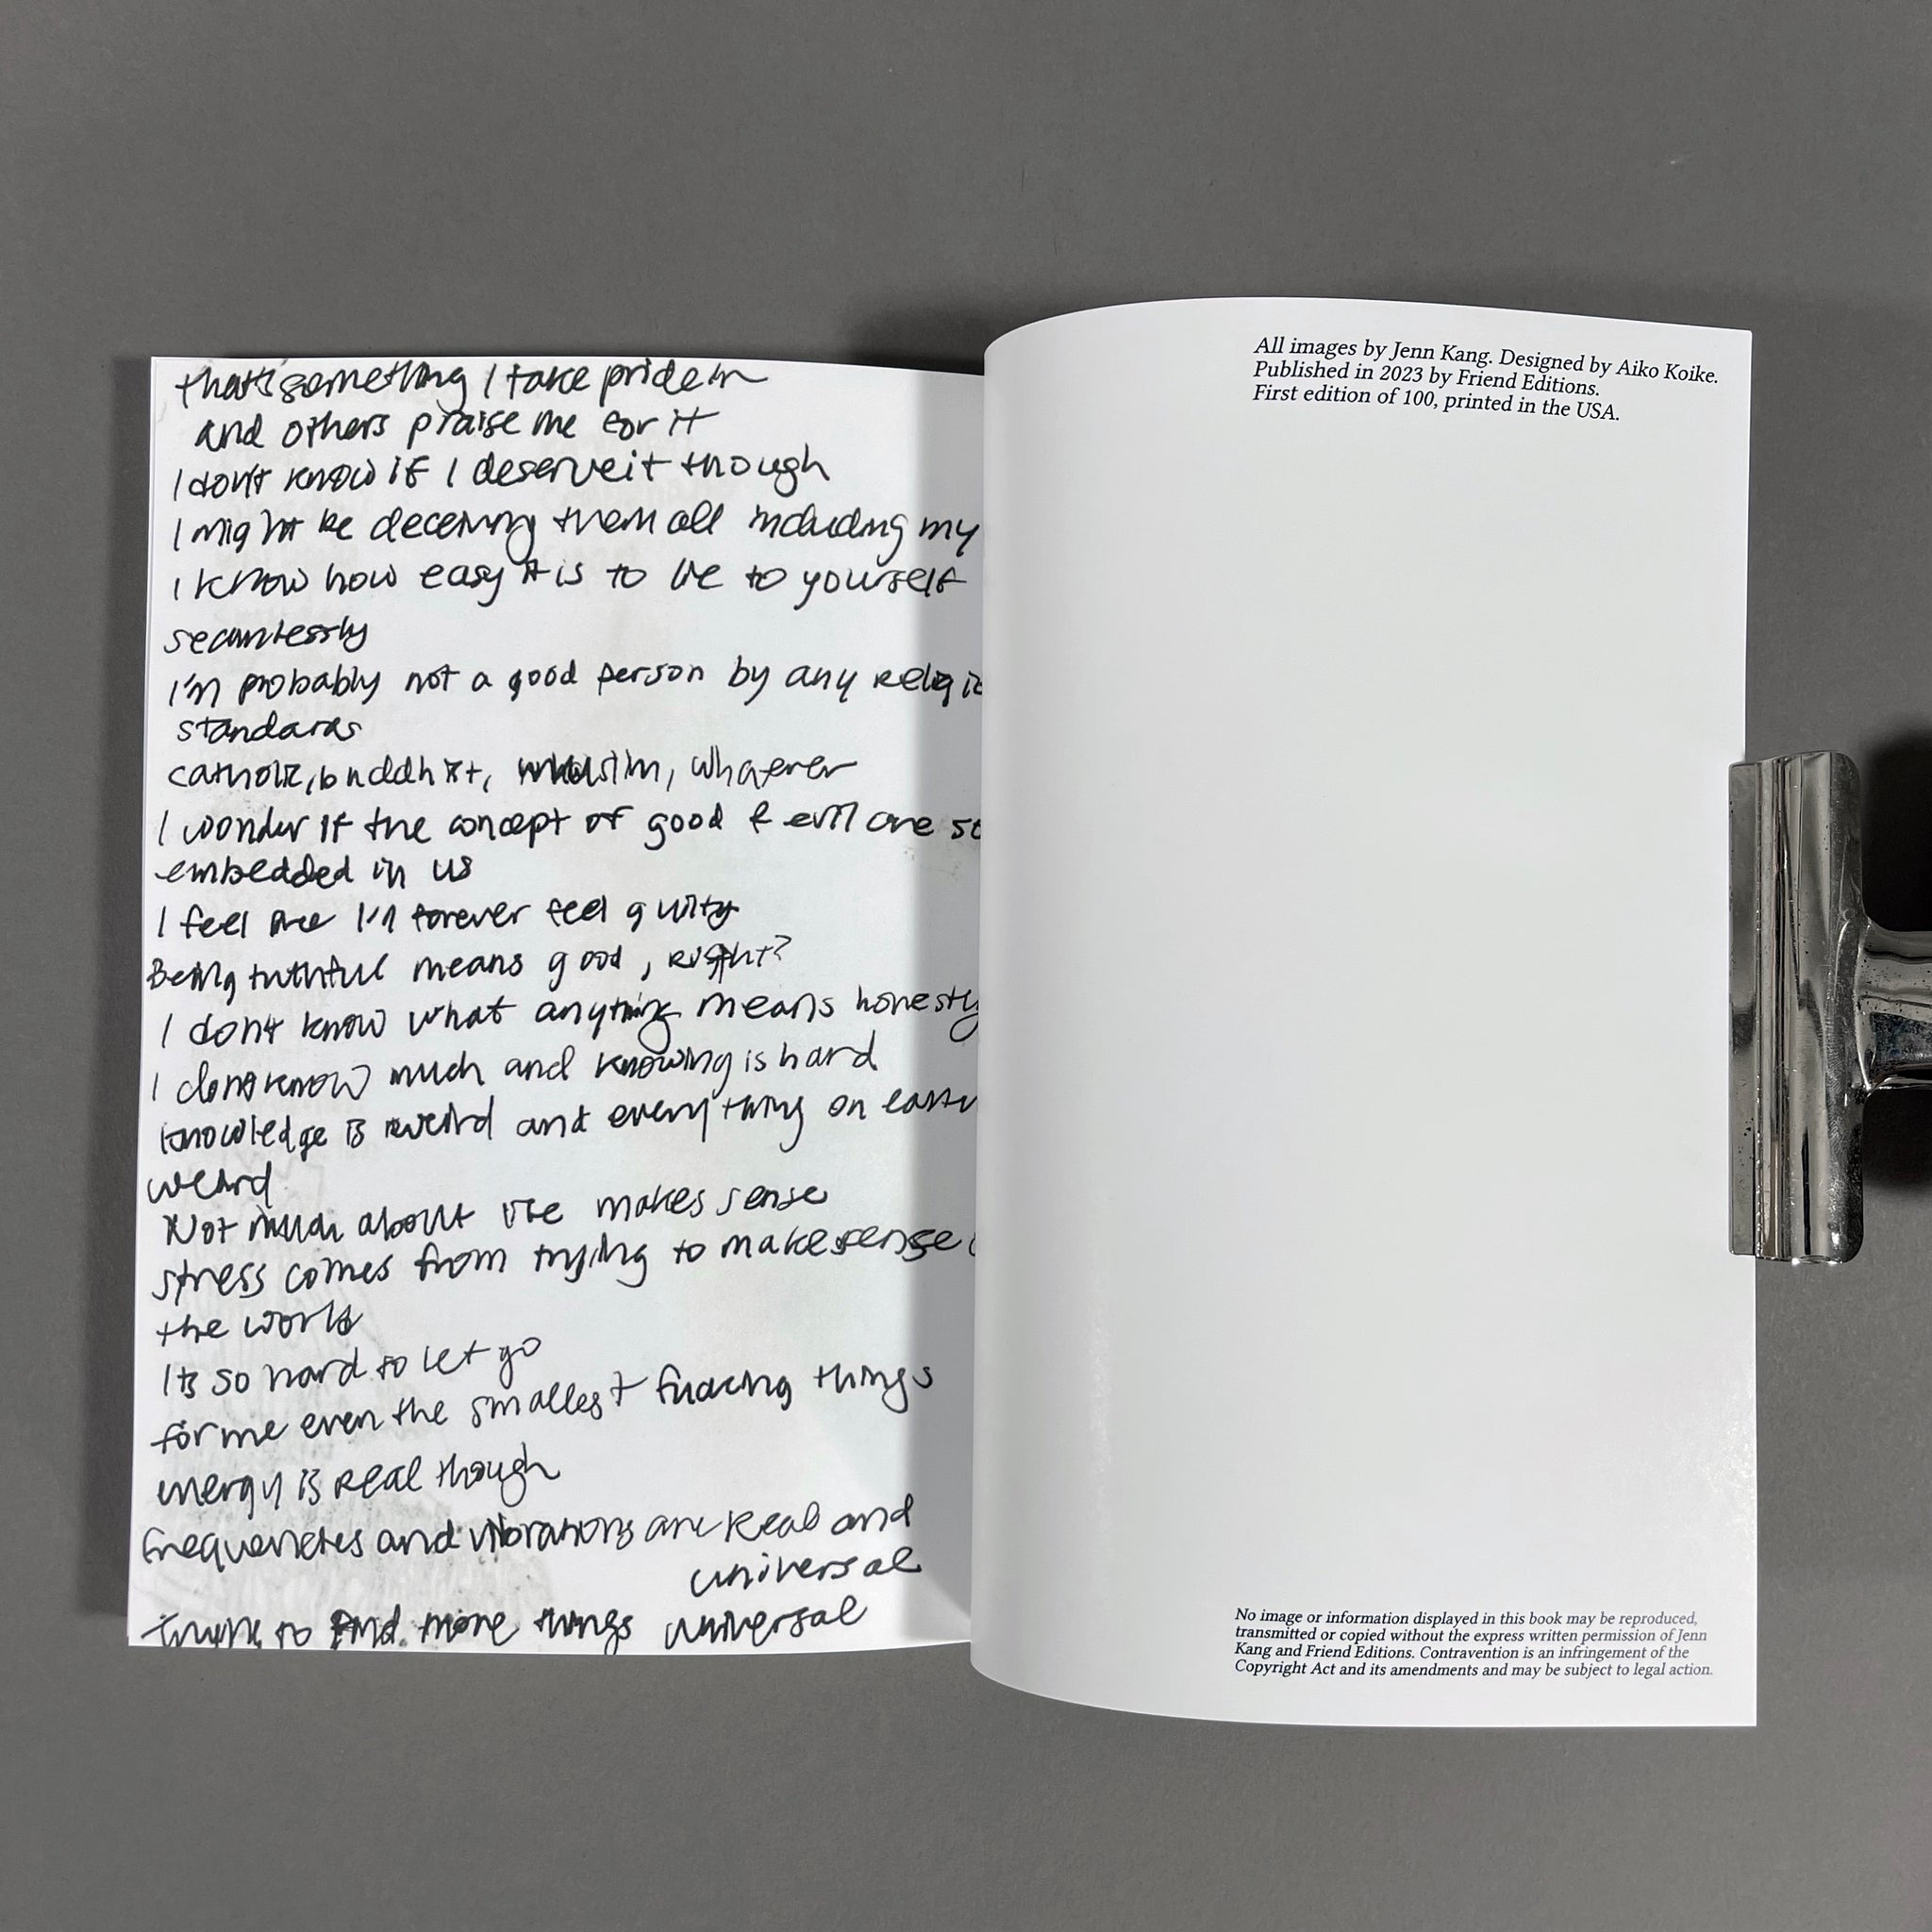 that's something I take pride in
and others praise me for it
I don't know if I deserve it though
I might be deceiving them all including my
I know how easy it is to lie to yourself
seamlessly
I'm probably not a good person by any religio
standards
catholic, buddhist, muslim, whatever
I wonder if the concept of good & evil are so
embedded in us
I feel like I'll forever feel guilty
Being truthful means good, right?
I don't know what anything means honestly
I don't know much and knowing is hard
knowledge is weird and everything on earth
weird
Not much about life makes sense
stress comes from trying to make sense
the world
Its so hard to let go
for me even the smallest fucking things
energy is real though
Frequencies and vibrations are real and
universal
to find more things universal
All images by Jenn Kang. Designed by Aiko Koike.
Published in 2023 by Friend Editions.
First edition of 100, printed in the USA.
No image or information displayed in this book may be reproduced,
transmitted or copied without the express written permission of Jenn
Kang and Friend Editions. Contravention is an infringement of the
Copyright Act and its amendments and may be subject to legal action.